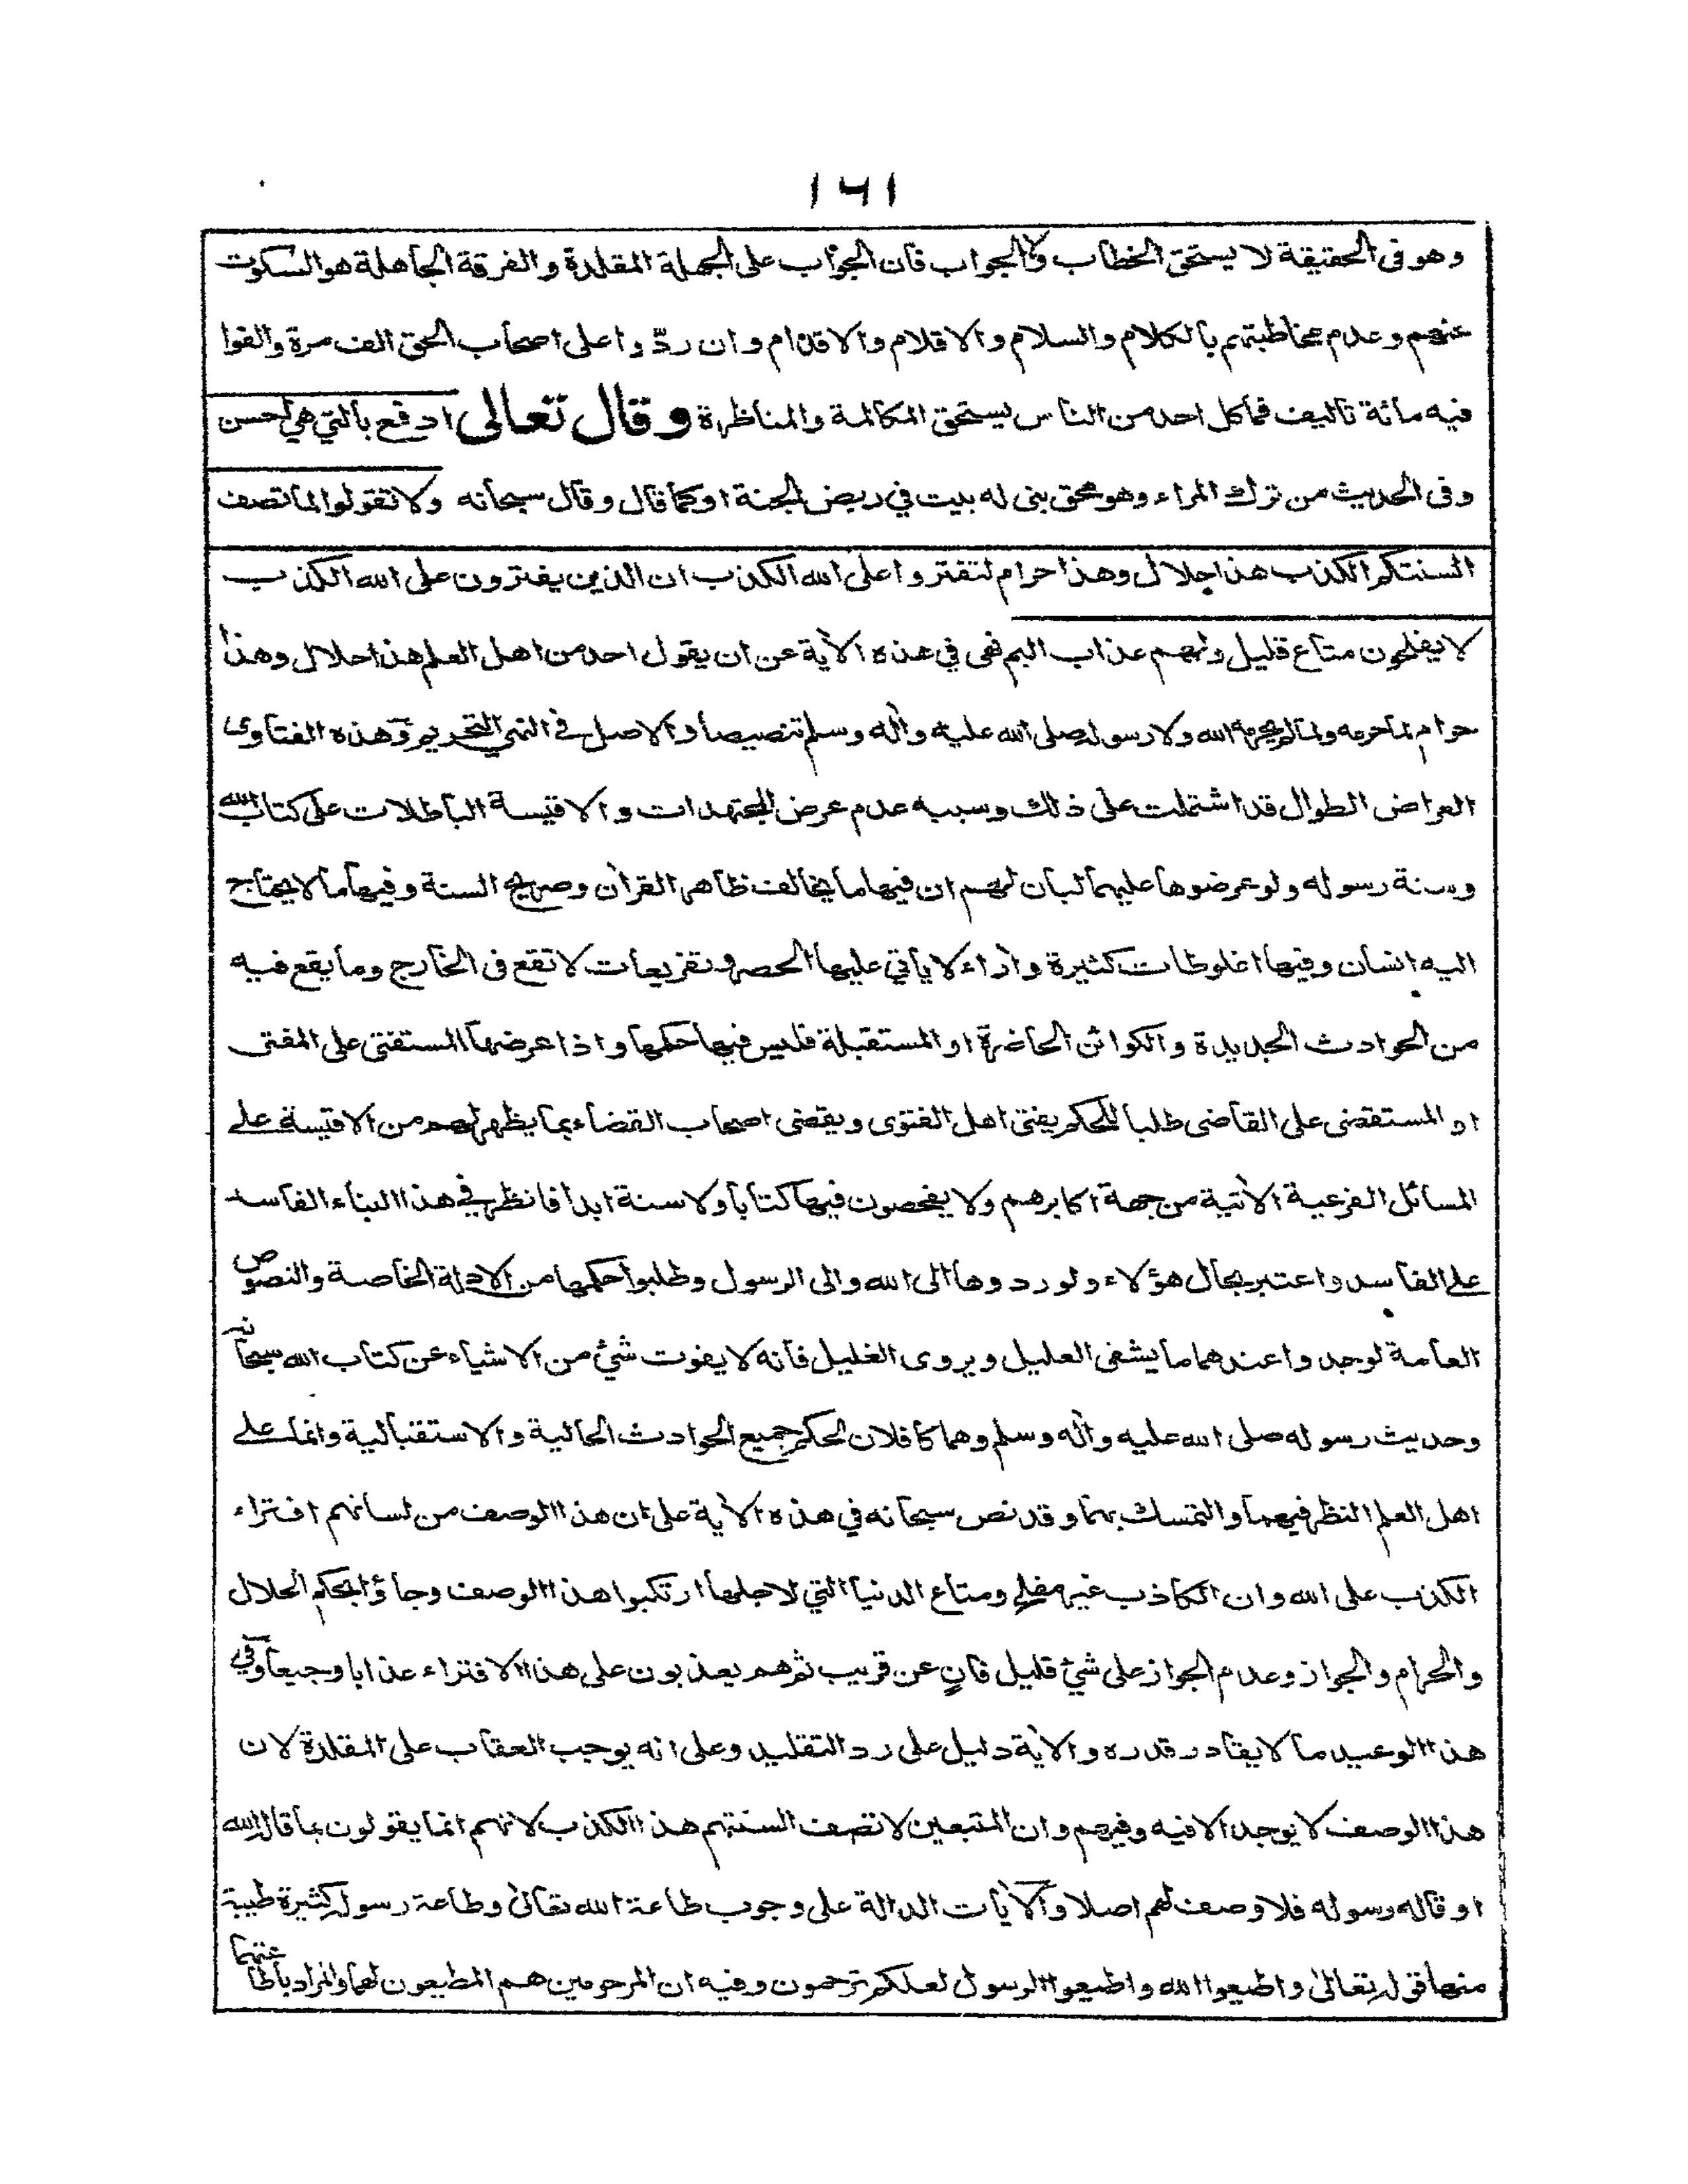 ١٦١
وهو فى الحقيقة لا يستحق الخطاب ولا الجواب فان الجواب على الجهلة المقلدة والفرقة الجاهلة هو السكوت
عنهم وعدم مخاطبتهم بالكلام والسلام والاقلام والاقدام وان ردّوا على اصحاب الحق الف مرة والفوا
فيه مائة تاليف فما كل احد من الناس يستحق المكالمة والمناظرة وقال تعالى ادفع بالتي هي احسن
وفى الحديث من ترك المراء وهو محق بنى له بيت في ربض الجنة او كما قال وقال سبحانه ولا تقولوا لما تصف
السنتكم الكذب هذا حلال وهذا حرام لتفتروا على الله الكذب ان الذين يفترون على الله الكذب
لا يفلحون متاع قليل ولهم عذاب اليم نهى في هذه الآية عن ان يقول احد من اهل العلم هذا حلال وهذا
حرام لما حرمه ولما لم يحرمه الله ولا رسوله صلى الله عليه وآله وسلم تنصيصا والاصل في النهي التحريم وهذه الفتاوى
العراض الطوال قد اشتملت على ذلك وسببه عدم عرض المجتهدات والاقيسة الباطلات على كتاب الله
وسنة رسوله ولو عرضوها عليهما لبان لهم ان فيها ما يخالف ظاهر القرآن وصريح السنة وفيها ما لا يحتاج
اليه انسان وفيها اغلوطات كثيرة وآراء لا يأتي عليها الحصر وتفريعات لا تقع فى الخارج وما يقع فيه
من الحوادث الجديدة والكوائن الحاضرة او المستقبلة فليس فيها حكمها واذا عرضها المستفتى على المفتى
او المستقضى على القاضى طلبا للحكم يفتى اهل الفتوى ويقضى اصحاب القضاء بما يظهر لهم من الاقيسة على
المسائل الفرعية الآتية من جهة اكابرهم ولا يفحصون فيها كتابا ولا سنة ابدا فانظر في هذا البناء الفاسد
على الفاسد واعتبر بحال هؤلاء ولو ردوها الى الله والى الرسول وطلبوا حكمها من الادلة الخاصة والنصوص
العامة لوجدوا عندهما ما يشفى العليل ويروى الغليل فانه لا يفوت شئ من الاشياء عن كتاب الله سبحانه
وحديث رسوله صلى الله عليه وآله وسلم وهما كافلان لحكم جميع الحوادث الحالية والاستقبالية وانما على
اهل العلم النظر فيهما والتمسك بهما وقد نص سبحانه في هذه الآية على ان هذا الوصف من لسانهم افتراء
الكذب على الله وان الكاذب غير مفلح ومتاع الدنيا التي لاجلها ارتكبوا هذا الوصف وجاؤا بحكم الحلال
والحرام والجواز وعدم الجواز على شئ قليل فانٍ عن قريب ثم هم يعذبون على هذا الافتراء عذابا وجيعا وفي
هذا الوعيد ما لا يقادر قدره والآية دليل على رد التقليد وعلى انه يوجب العقاب على المقلدة لان
هذا الوصف لا يوجد الا فيه وفيهم وان المتبعين لا تصف السنتهم هذا الكذب لانهم انما يقولون بما قال الله
او قاله رسوله فلا وصف لهم اصلا والآيات الدالة على وجوب طاعة الله تعالى وطاعة رسوله كثيرة طيبة
منها قوله تعالى واطيعوا الله واطيعوا الرسول لعلكم ترحمون وفيه ان المرحومين هم المطيعون لهما والمراد باطاعتهما